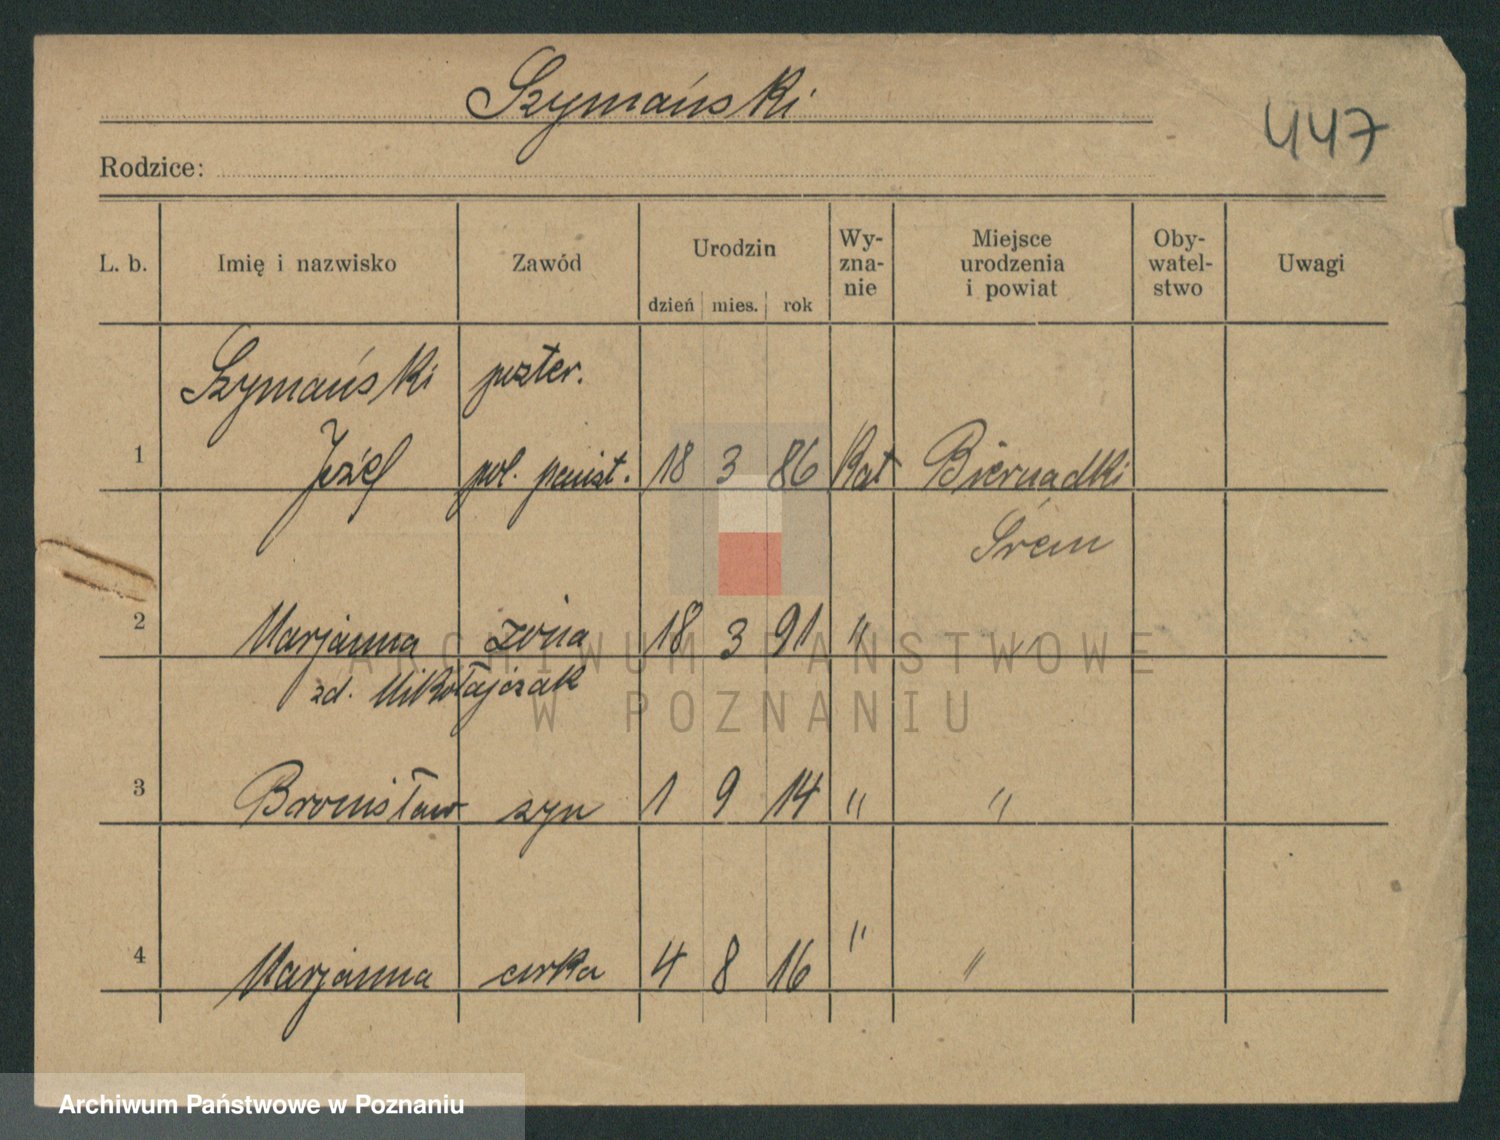 Szymański
447
Rodzice:
L. b. Imię i nazwisko Zawód Urodzin dzień mies. rok Wy-zna-nie Miejsce urodzenia i powiat Oby-watel-stwo Uwagi
Szymański
1 Józef pol. 18 3 86 Kat Biernadki
Śrem
2 Marjanna żona 18 3 91 "
zd. Mikołajczak
3 Bronisław syn 1 9 14 " "
4 Marjanna corka 4 8 16 " "
ARCHIWUM PAŃSTWOWE
W POZNANIU
Archiwum Państwowe w Poznaniu